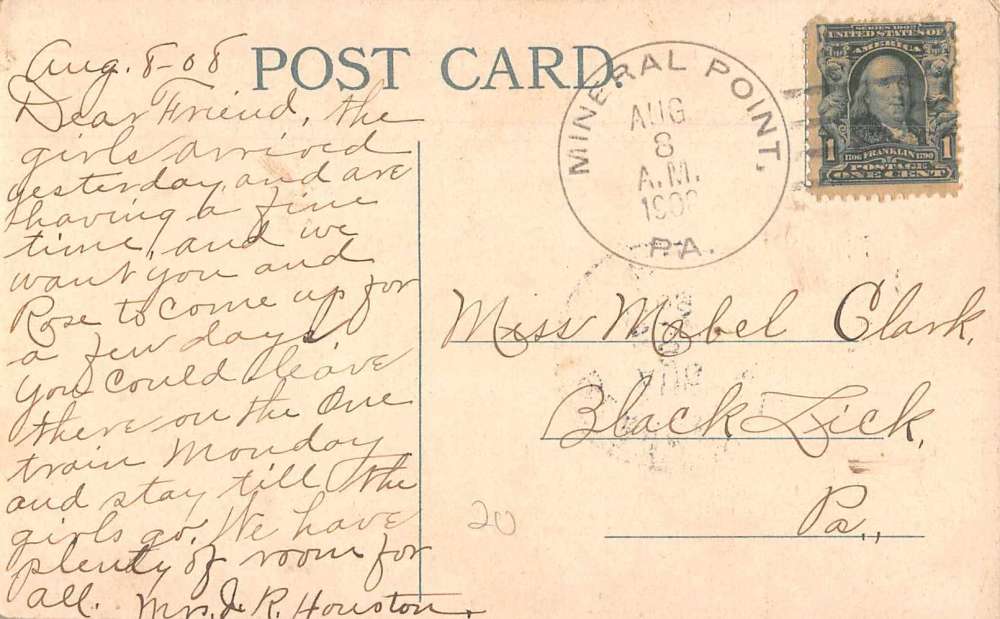 Aug. 8-08
POST CARD.
Dear Friend, the
girls arrived
yesterday, and are
having a fine
time, and we
want you and
Rose to come up for
a few days
You could leave
there on the One
train Monday
and stay till the
girls go. We have
plenty of room for
all. Mrs. J. R. Houston.
MINERAL POINT,
AUG
8
A.M.
1908
PA.
SERIES 1902
UNITED STATES OF
AMERICA
1 1706 FRANKLIN 1790 1
POSTAGE
ONE CENT
Miss Mabel Clark,
Black Lick,
Pa.,
20